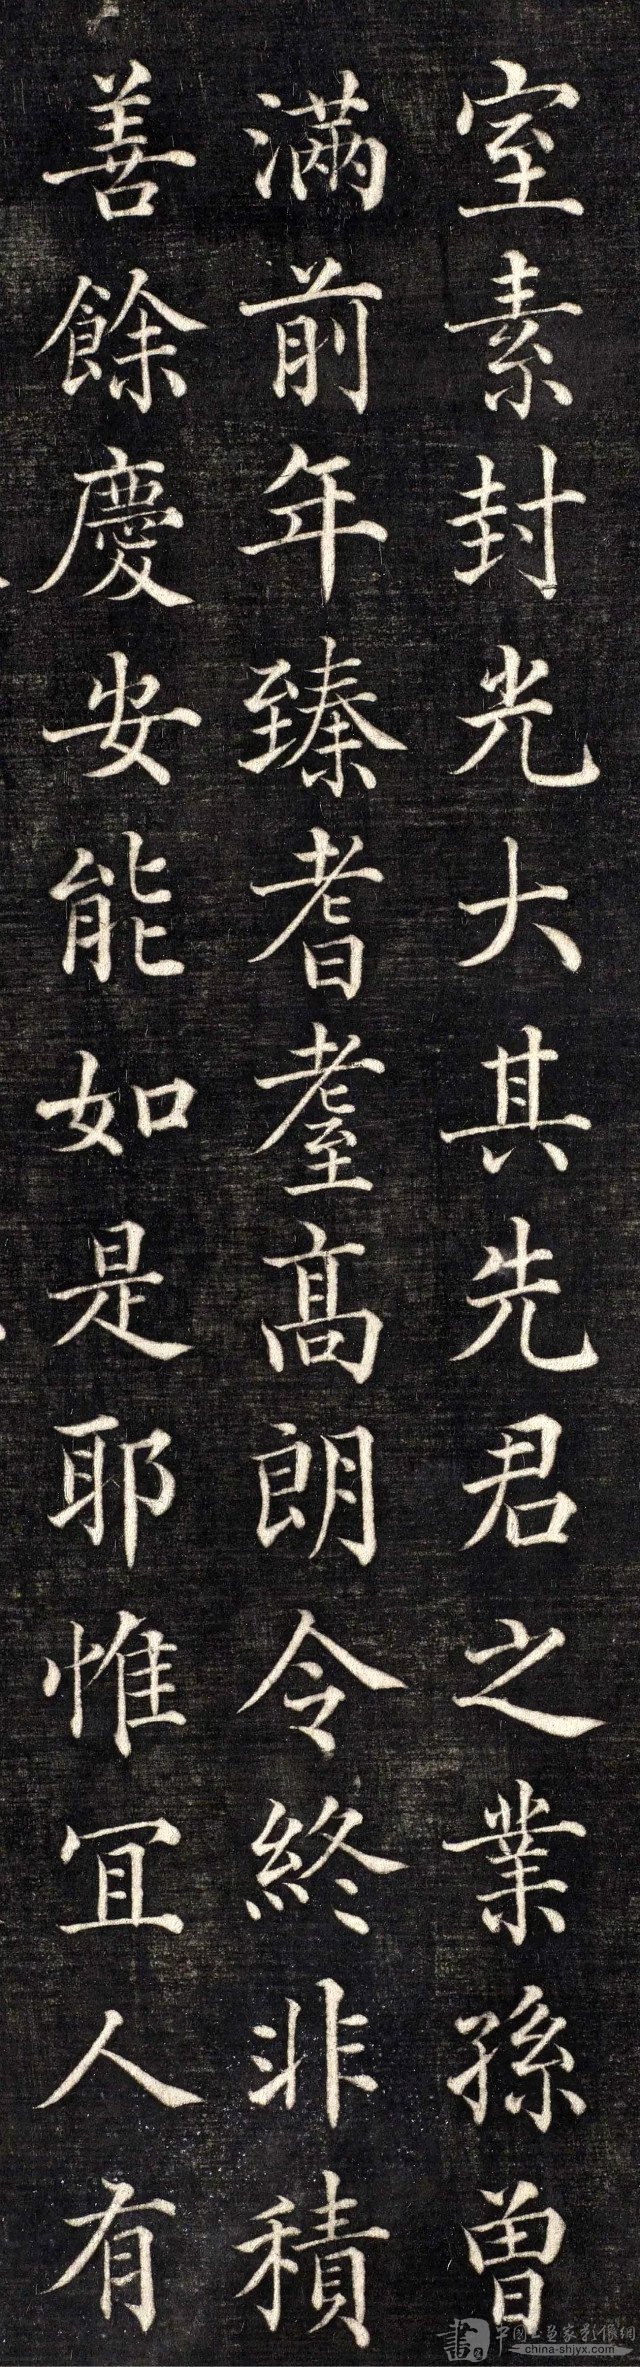 室素封光大其先君之業孫曾
滿前年臻耆耋高朗令終非積
善餘慶安能如是耶惟冝人有
書 中国书画家影像網
china-shjyx.com